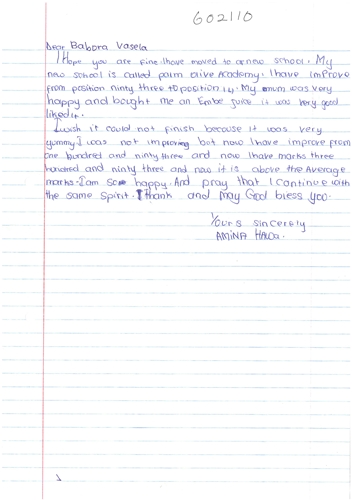 602110
Dear Babora Vasela
I Hope you are fine I have moved to a new school. My
new school is called palm olive Academy. I have improve
from position ninty three to position 14. My mum was very
happy and bought me an Embe juice it was very good
liked it.
I wish it could not finish because it was very
yummy I was not improving but now I have improve from
one hundred and ninty three and now I have marks three
hundred and ninty three and now it is above the Average
marks. I am so happy. And pray that I continue with
the same spirit. thank and may God bless you.
Yours sincerely
AMINA